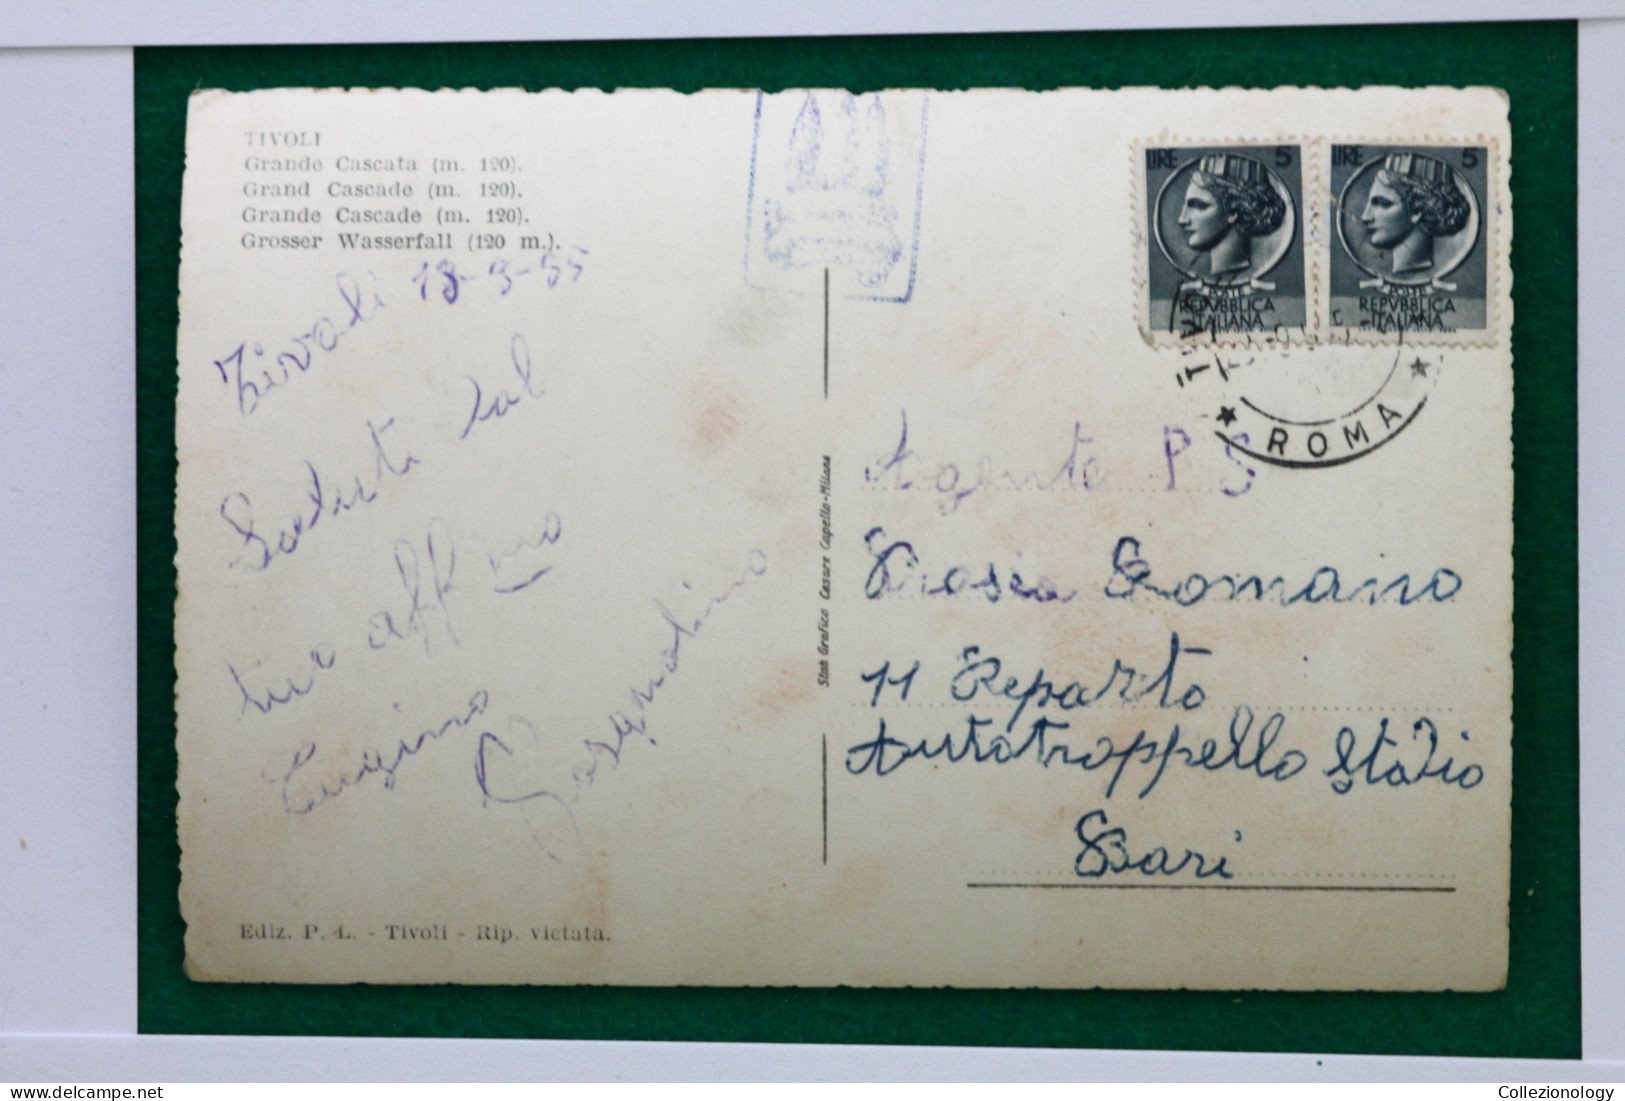 TIVOLI
Grande Cascata (m. 120).
Grand Cascade (m. 120).
Grande Cascade (m. 120).
Grosser Wasserfall (120 m.).
Tivoli 18-9-55
Saluti dal
tuo aff mo
Cugino
Pasqualino
Ediz. P. L. - Tivoli - Rip. vietata.
Stab Grafico Cesare Capello-Milano
LIRE 5
POSTE
REPVBBLICA
ITALIANA
LIRE 5
POSTE
REPVBBLICA
ITALIANA
ROMA
Agente P S
Romano
11 Reparto
Autotrappello Stadio
Bari
Collezionology